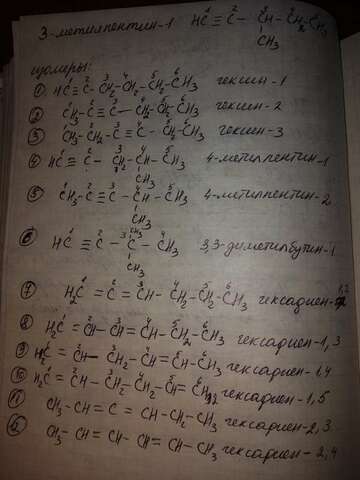 3-метилпентин-1 HC ≡ C - CH - CH2 - CH3
CH3
изомеры:
① HC ≡ C - CH2 - CH2 - CH2 - CH3 гексин-1
② CH3 - C ≡ C - CH2 - CH2 - CH3 гексин-2
③ CH3 - CH2 - C ≡ C - CH2 - CH3 гексин-3
④ HC ≡ C - CH2 - CH - CH3 4-метилпентин-1
CH3
⑤ CH3 - C ≡ C - CH - CH3 4-метилпентин-2
CH3
CH3
⑥ HC ≡ C - C - CH3 3,3-диметилбутин-1
CH3
⑦ H2C = C = CH - CH2 - CH2 - CH3 гексадиен-1,2
⑧ H2C = CH - CH = CH - CH2 - CH3 гексадиен-1,3
⑨ H2C = CH - CH2 - CH = CH - CH3 гексадиен-1,4
⑩ H2C = CH - CH2 - CH2 - CH = CH2 гексадиен-1,5
⑪ CH3 - CH = C = CH - CH2 - CH3 гексадиен-2,3
CH3 - CH = CH - CH = CH - CH3 гексадиен-2,4